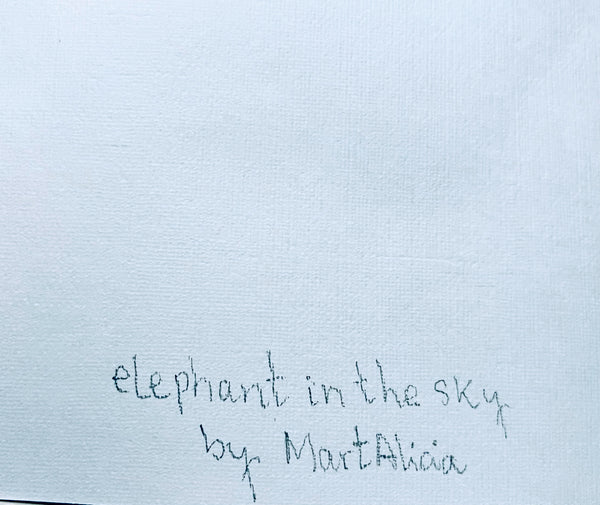 elephant in the sky
by MartAlicia